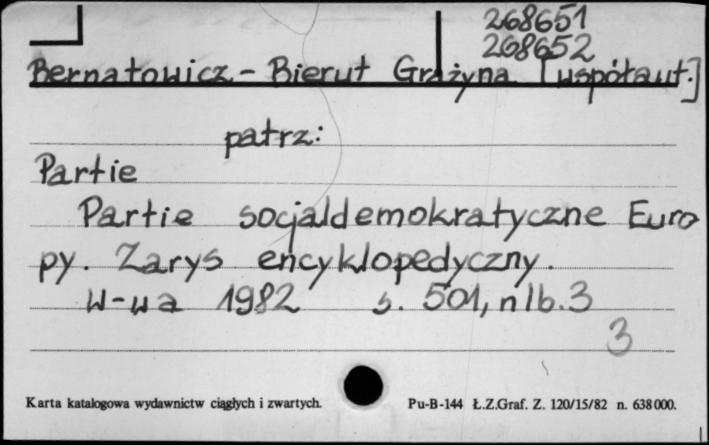 268651
268652
Bernatowicz - Bierut Grażyna [współaut.]
patrz:
Partie
Partie socjaldemokratyczne Euro
py. Zarys encyklopedyczny.
W-wa 1982 s. 501, nlb. 3
3
Karta katalogowa wydawnictw ciągłych i zwartych. Pu-B-144 Ł.Z.Graf. Z. 120/15/82 n. 638000.